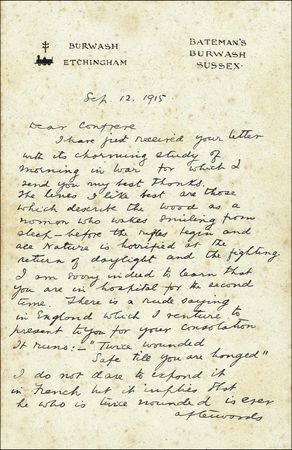 BURWASH
ETCHINGHAM
BATEMAN'S
BURWASH
SUSSEX.
Sep. 12. 1915
Dear Confrere
I have just received your letter
with its charming study of
morning in war for which I
send you my best thanks.
The lines I like best are those
which describe the wood as a
woman who wakes smiling from
sleep - before the rifles begin and
all Nature is horrified at the
return of daylight and the fighting.
I am sorry indeed to learn that
you are in hospital for the second
time. There is a rude saying
in England which I venture to
present to you for your consolation
It runs:- "Twice wounded
Safe till you are hanged"
I do not dare to expond it
in French but it implies that
he who is twice wounded is ever
afterwards